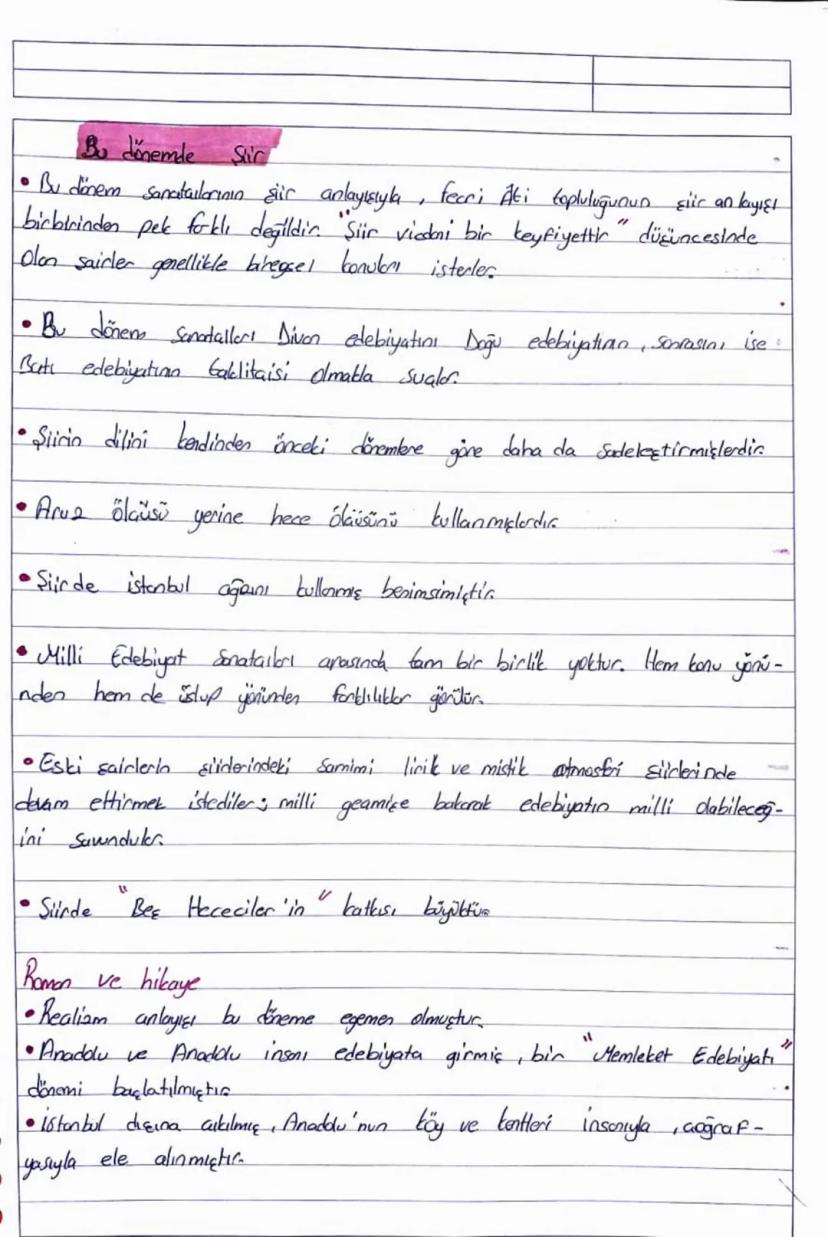 Bu dönemde Şiir
• Bu dönem sanatçılarının şiir anlayışıyla, fecri Âti topluluğunun şiir anlayışı
birbirinden pek farklı değildir. "Şiir vicdani bir keyfiyettir" düşüncesinde
olan şairler genellikle bireysel konuları isterler.
• Bu dönem sanatçıları Divan edebiyatını Doğu edebiyatının, sonrasını ise
Batı edebiyatının taklitçisi olmakla suçlar.
• Şiirin dilini kendinden önceki dönemlere göre daha da sadeleştirmişlerdir.
• Aruz ölçüsü yerine hece ölçüsünü kullanmışlardır.
• Şiirde istanbul ağzını kullanmış benimsimiştir.
• Milli Edebiyat sanatçıları arasında tam bir birlik yoktur. Hem konu yönü-
nden hem de üslup yönünden farklılıklar görülür.
• Eski şairlerin şiirlerindeki samimi lirik ve mistik atmosferi şiirlerinde
devam ettirmek istediler; milli geçmişe bakarak edebiyatın milli olabileceğ-
ini savundular.
• Şiirde "Beş Hececiler'in" katkısı büyüktür.
Roman ve hikaye
• Realizm anlayışı bu döneme egemen olmuştur.
• Anadolu ve Anadolu insanı edebiyata girmiş, bir "Memleket Edebiyatı"
dönemi başlatılmıştır.
• istanbul dışına çıkılmış, Anadolu'nun köy ve kentleri insanıyla, coğraf-
yasıyla ele alınmıştır.